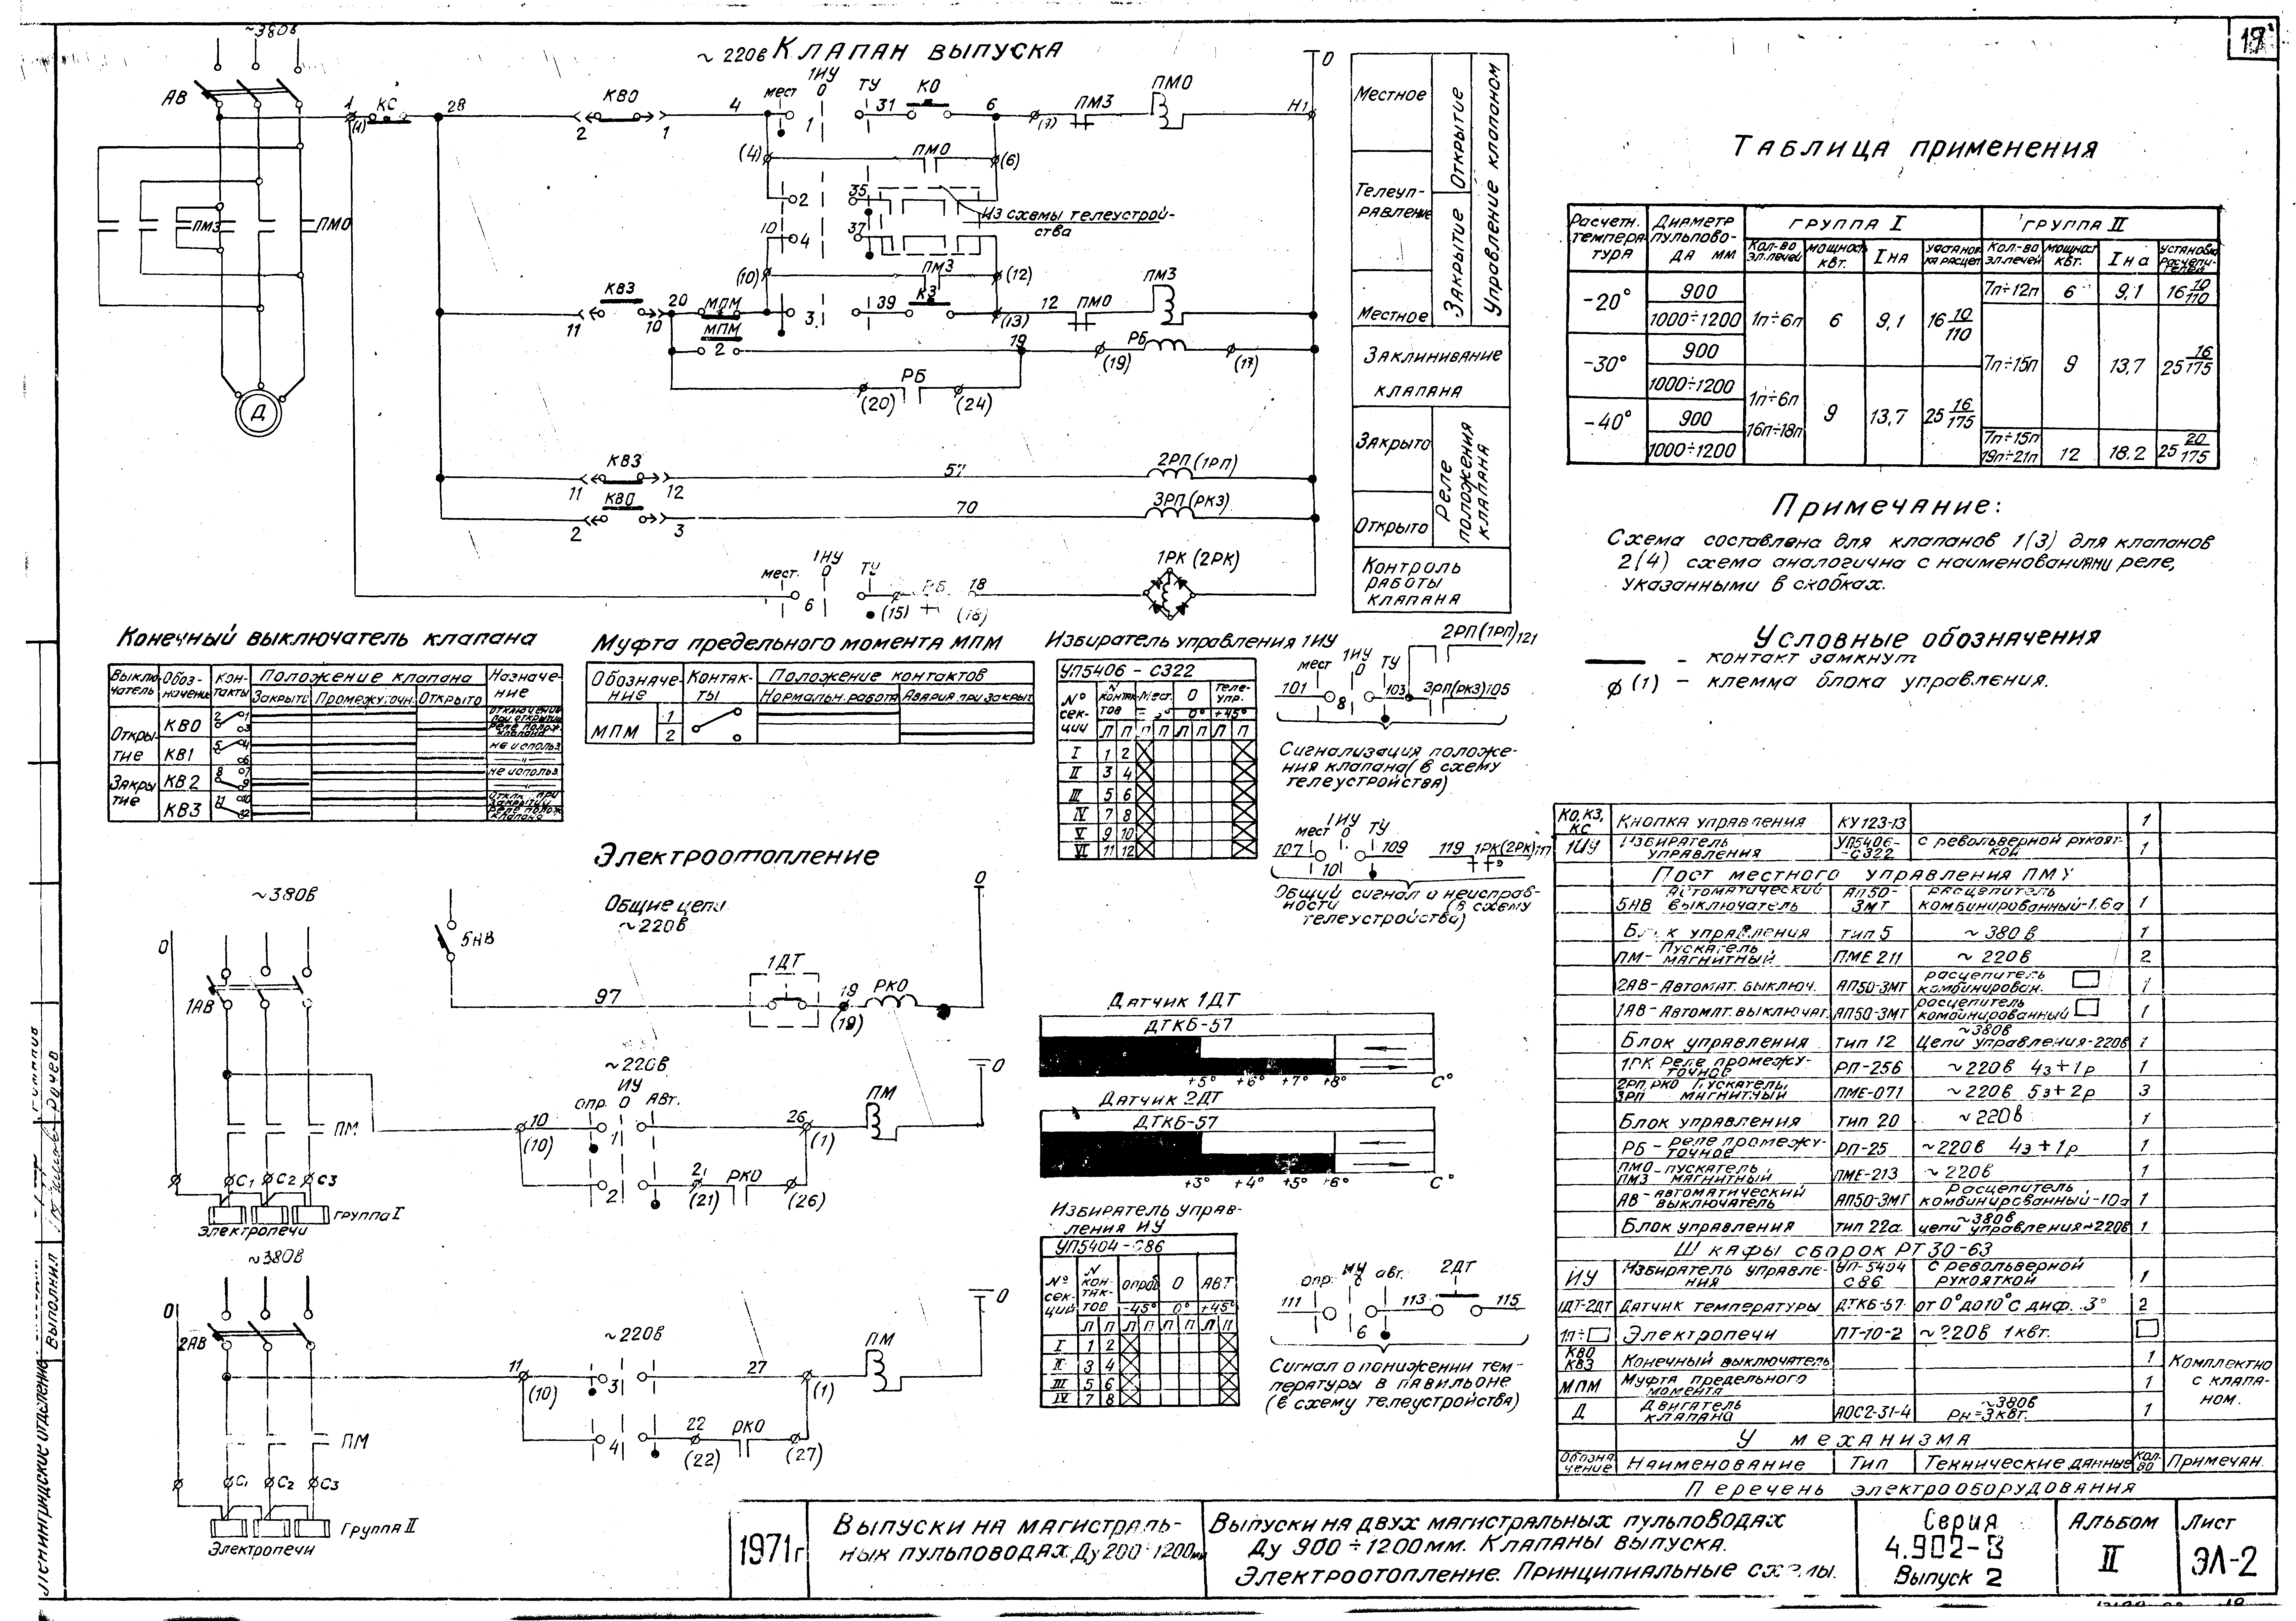 19
~380в
АВ
1
(1)
КС
28
~220в Клапан выпуска
1ИУ
мест О ТУ
КВО
2 1
4
1
31
КО
6
(7)
ПМЗ
ПМО
Н1
0
(4)
ПМО
(6)
2
35
Из схемы телеустрой-
ства
10
4
37
(10)
ПМЗ
(12)
КВЗ
11 10
20
МПМ
3
39
КЗ
(13)
12
ПМО
ПМЗ
МПМ
2
19
(19)
РБ
(17)
РБ
(20)
(24)
ПМЗ
ПМО
Д
КВЗ
11 12
57
2РП (1РП)
КВО
2 3
70
3РП (РКЗ)
мест. О ТУ
6
(15)
РБ
18
(18)
1РК (2РК)
Местное
Телеуп-
равление
Местное
Открытие
Закрытие
Управление клапаном
Заклинивание
клапана
Закрыто
Открыто
Реле
положения
клапана
Контроль
работы
клапана
Таблица применения
Расчетн. температура
Диаметр пульповода мм
Группа I
Группа II
Кол-во эл.печей
мощност квт.
Iна
установка расцеп.
Кол-во эл.печей
мощност квт.
Iна
установка расцепителей
-20°
900
1000÷1200
1п÷6п
6
9,1
16 10/110
7п÷12п
6
9,1
16 10/110
-30°
900
1000÷1200
7п÷15п
9
13,7
25 16/175
-40°
900
1000÷1200
1п÷6п
16п÷18п
9
13,7
25 16/175
7п÷15п
19п÷21п
12
18,2
25 20/175
Примечание:
Схема составлена для клапанов 1(3) для клапанов
2(4) схема аналогична с наименованиями реле,
указанными в скобках.
Условные обозначения
- контакт замкнут
(1) - клемма блока управления.
Конечный выключатель клапана
Выключатель
Обозначение
контакты
Положение клапана
Назначение
Закрыто
Промежуточн.
Открыто
Открытие
КВО
2 1
3
КВ1
5 4
6
не использ.
Закрытие
КВ2
8 7
9
не использ.
КВЗ
11 10
12
Муфта предельного момента МПМ
Обозначение
Контакты
Положение контактов
Нормальн. работа
Авария при закрыт.
МПМ
1
2
Избиратель управления 1ИУ
УП5406 - С322
№ секции
N контактов
Мест.
О
Телеупр.
0°
+45°
Л П Л П Л П Л П
I 1 2
II 3 4
III 5 6
IV 7 8
V 9 10
VI 11 12
2РП(1РП) 121
мест 1ИУ О ТУ
101
8
103
3РП(РКЗ) 105
Сигнализация положе-
ния клапана (в схему
телеустройства)
1ИУ
мест О ТУ
107
10
109
119
1РК(2РК) 117
Общий сигнал о неисправ-
ности (в схему
телеустройства)
Электроотопление
~380в
0
1АВ
ПМ
С1 С2 С3
Группа I
Электропечи
5АВ
Общие цепи
~220в
97
1ДТ
19
(19)
РКО
0
~220в
ИУ
опр. О Авт.
10
(10)
1
26
(1)
ПМ
0
2
21
(21)
РКО
(26)
~380в
0
2АВ
ПМ
С1 С2 С3
Группа II
Электропечи
~220в
11
(10)
3
27
(1)
ПМ
0
4
22
(22)
РКО
(27)
Датчик 1ДТ
ДТКБ-57
+5° +6° +7° +8° С°
Датчик 2ДТ
ДТКБ-57
+3° +4° +5° +6° С°
Избиратель управ-
ления ИУ
УП5404-С86
№ секции
N контактов
опроб
О
АВТ
-45°
0°
+45°
Л П Л П Л П Л П
I 1 2
II 3 4
III 5 6
IV 7 8
опр. ИУ авт. 2ДТ
111
6
113
115
Сигнал о понижении тем-
пературы в павильоне
(в схему телеустройства)
КО, КЗ, КС Кнопка управления КУ123-13 1
1ИУ Избиратель управления УП5406-С322 с револьверной рукояткой 1
Пост местного управления ПМУ
5АВ автоматический выключатель АП50-3МТ расцепитель комбинированный-1,6а 1
Блок управления тип 5 ~380в 1
ПМ- Пускатель магнитный ПМЕ 211 ~220в 2
2АВ-Автомат. выключ. АП50-3МТ расцепитель комбинирован. 1
1АВ-Автомат. выключат. АП50-3МТ расцепитель комбинированный 1
Блок управления тип 12 ~380в Цепи управления-220в 1
1РК реле промежуточное РП-256 ~220в 4з+1р 1
2РП, РКО 3РП Пускатель магнитный ПМЕ-071 ~220в 5з+2р 3
Блок управления тип 20 ~220в 1
РБ - реле промежуточное РП-25 ~220в 4з+1р 1
ПМО ПМЗ - пускатель магнитный ПМЕ-213 ~220в 1
АВ - автоматический выключатель АП50-3МТ Расцепитель комбинированный-10а 1
Блок управления тип 22а ~380в цепи управления~220в 1
Шкафы сборок РТ30-63
ИУ Избиратель управления УП-5404 С86 с револьверной рукояткой 1
1ДТ-2ДТ Датчик температуры ДТКБ-57 от 0° до 10°С диф. 3° 2
1п÷ Электропечи ПТ-10-2 ~220в 1квт.
КВО КВЗ Конечный выключатель 1
МПМ Муфта предельного момента 1
Д Двигатель клапана АОС2-31-4 ~380в Рн=3квт. 1
Комплектно
с клапа-
ном.
У механизма
Обозначение Наименование Тип Технические данные Кол-во Примечан.
Перечень электрооборудования
1971г
Выпуски на магистраль-
ных пульповодах Ду 200÷1200мм
Выпуски на двух магистральных пульповодах
Ду 900÷1200мм. Клапаны выпуска.
Электроотопление. Принципиальные схемы.
Серия
4.902-8
Выпуск 2
Альбом
II
Лист
ЭЛ-2
Ленинградское отделение
Выполнил